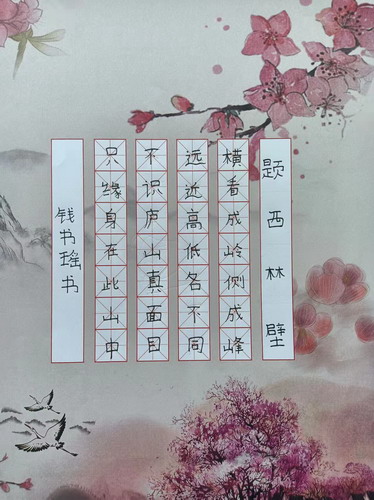 题西林壁
横看成岭侧成峰
远近高低名不同
不识庐山真面目
只缘身在此山中
钱书瑶书